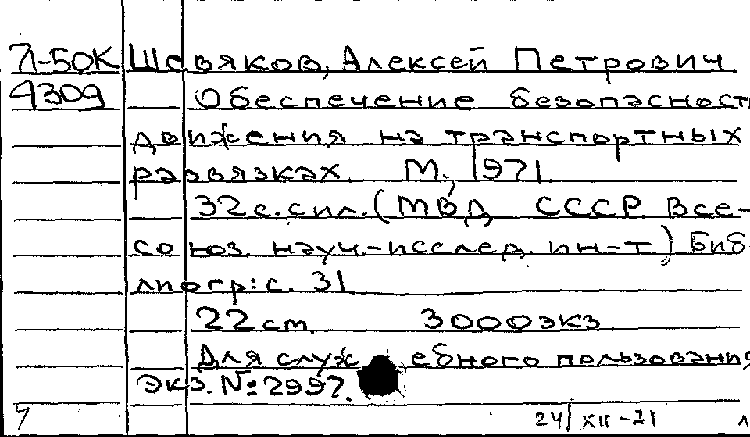 Л-50К Шевяков, Алексей Петрович
4309 Обеспечение безопасност
движения на транспортных
развязках. М., 1971.
32 с. с ил. (МВД СССР Все-
союз. науч.-исслед. ин-т) Биб-
лиогр: с. 31
22 см. 3000 экз
Для служебного пользования
Экз. № 2997.
24/XII-71